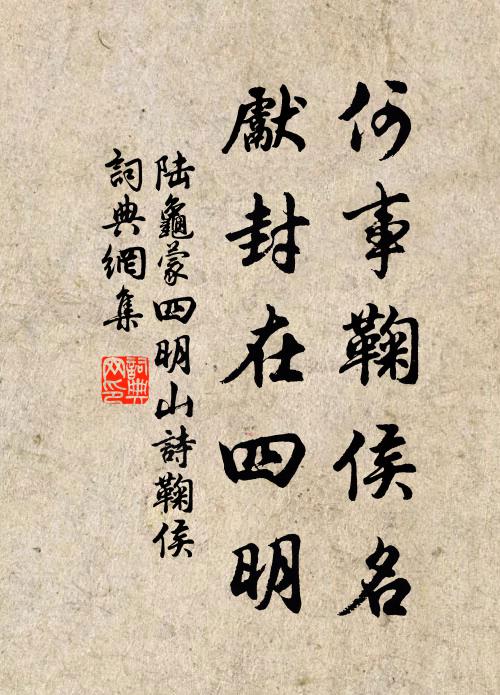 何事鞠侯名
獻封在四明
陆龜蒙四明山詩鞠侯
詞典網集
詞典
网印